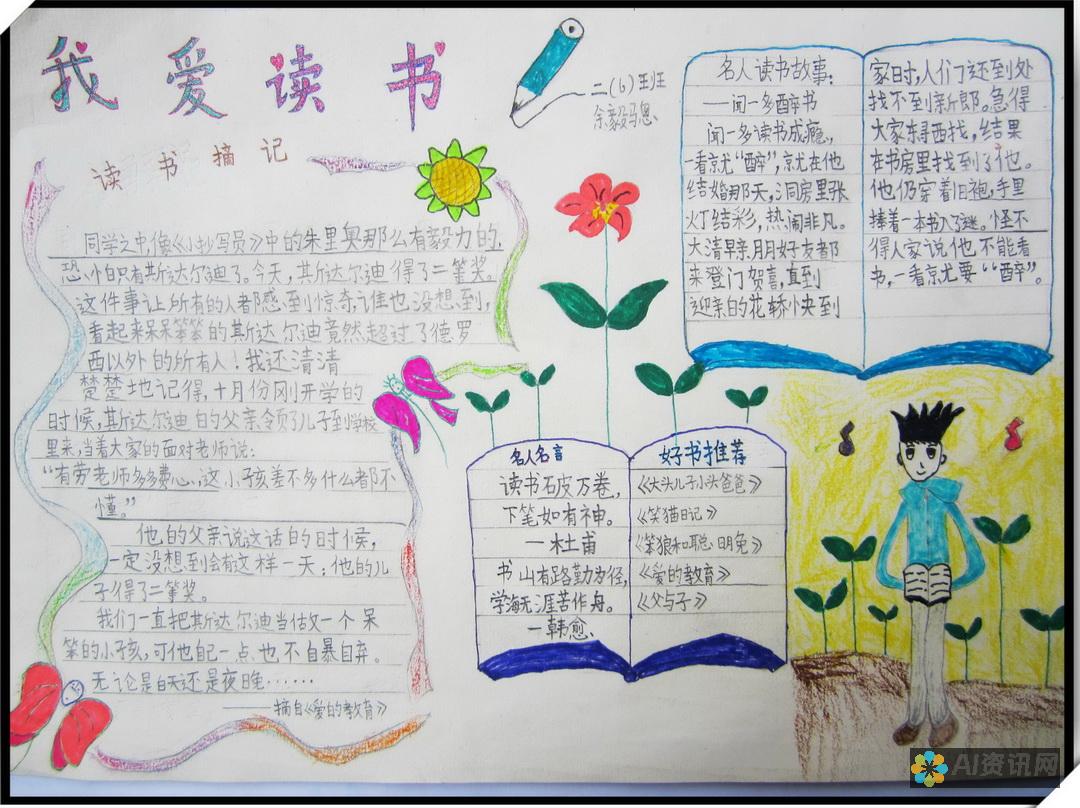 我爱读书
二(6)班
余毅玛恩
读书摘记
同学之中,像《小抄写员》中的朱里奥那么有毅力的,
恐怕只有斯达尔迪了。今天,其斯达尔迪得了二等奖。
这件事让所有的人都感到惊奇,谁也没想到,
看起来呆呆笨笨的其斯达尔迪竟然超过了德罗
西以外的所有人!我还清清
楚楚地记得,十月份刚开学的
时候,其斯达尔迪的父亲领了儿子到学校
里来,当着大家的面对老师说:
“有劳老师多多费心,这小孩差不多什么都不
懂。”
他的父亲说这话的时候,
一定没想到会有这样一天:他的儿
子得了二等奖。
我们一直把其斯达尔迪当做一个呆
笨的小孩,可他自己一点也不自暴自弃。
无论是白天还是夜晚……
——摘自《爱的教育》
名人读书故事:
——闻一多醉书
闻一多读书成瘾,
一看就“醉”,就在他
结婚那天,洞房里张
灯结彩,热闹非凡。
大清早亲朋好友都
来登门贺喜,直到
迎亲的花轿快到
家时,人们还到处
找不到新郎。急得
大家东寻西找,结果
在书房里找到了他。
他仍穿着旧袍,手里
捧着一本书入了迷。怪不
得人家说他不能看
书,一看就要“醉”。
名人名言
读书破万卷,
下笔如有神。
—杜甫
书山有路勤为径,
学海无涯苦作舟。
—韩愈
好书推荐
《大头儿子小头爸爸》
《笑猫日记》
《笨狼和聪明兔》
《爱的教育》
《父与子》
AI资讯网